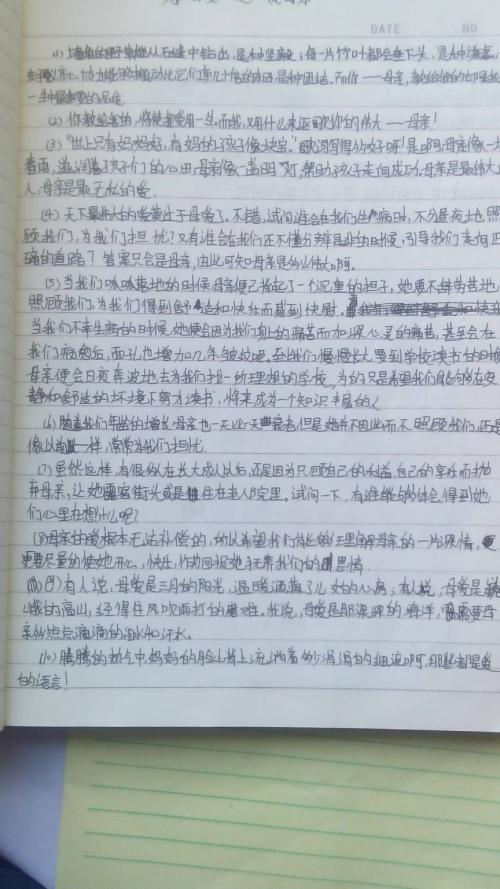 DATE NO
(1) 墙角的野草从石缝中钻出,是种坚毅;每一片竹叶都会垂下头,是种
一生中最重要的品质
(2) 你教给我的,将使我受用一生。而我,又用什么来返回你的伟大——母亲!
(3) "世上只有妈妈好,有妈的孩子像块宝。"歌词写得多好啊!是啊,母亲像一
春雨,滋润着孩子们的心田;母亲像一盏明灯,帮助孩子走向成功。母亲是最伟大
人,母亲是最无私的爱。
(4) 天下最伟大的爱莫过于母爱了,不错,试问谁会在我们生病时,不分昼夜地照
顾我们,为我们担忧?又有谁会在我们还不懂分辨是非的时候,引导我们走向正
确的道路?答案只会是母亲,由此可知母亲是多么伟大啊。
(5) 当我们呱呱落地的时候,母亲便已背起了一个沉重的担子,她要不辞劳苦地
照顾我们,为我们得到舒适和快乐而感到快慰。
当我们不幸生病的时候,她便会因为我们身上的痛苦而加深心灵的痛苦,甚至会在
我们病愈后,面孔也增加几条皱纹呢。到我们慢慢长大,要到学校读书的时候
母亲便会日夜奔波地去为我们找一所理想的学校,为的只是希望我们能够在安
静和舒适的环境下努力读书,将来成为一个知识丰富的人
(6) 随着我们年龄的增长,母亲也一天比一天衰老,但是她并不因此而不照顾我们,还是
像以前一样,常常为我们担忧。
(7) 虽然这样,有很多人在长大成人以后,还是因为只顾自己的利益,自己的享乐而抛
弃母亲,让她露宿街头或是住在老人院里。试问一下,有谁能够体会得到她
们心里在想什么呢?
(8) 母亲的爱根本无法补偿的,所以希望我们能够理解母亲的一片深情,
更要尽量的使她开心,快乐,作为回报她抚养我们的恩情。
(9) 有人说,母爱是三月的阳光,温暖洒满了儿女的心房;有人说,母爱是
的高山,经得住风吹雨打的磨难。我说,母爱是那深渊的海洋,需要母
亲多少点点滴滴的泪水和汗水。
(10) 腾腾的热气中,妈妈的脸上背上流淌着多少涓涓的细流啊,那些都是爱
的语言!